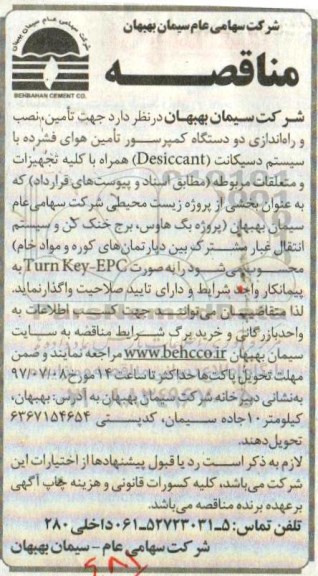 شرکت سهامی عام سیمان بهبهان
شرکت سهامی عام سیمان بهبهان
BEHBAHAN CEMENT CO.
مناقصه
شرکت سیمان بهبهان درنظر دارد جهت تأمین، نصب
و راه‌اندازی دو دستگاه کمپرسور تأمین هوای فشرده با
سیستم دسیکانت (Desiccant) همراه با کلیه تجهیزات
و متعلقات مربوطه (مطابق اسناد و پیوست‌های قرارداد) که
به عنوان بخشی از پروژه زیست محیطی شرکت سهامی عام
سیمان بهبهان (پروژه بگ هاوس، برج خنک کن و سیستم
انتقال غبار مشترک بین دپارتمان‌های کوره و مواد خام)
محسوب می‌شود را به صورت Turn Key-EPC به
پیمانکار واجد شرایط و دارای تایید صلاحیت واگذار نماید.
لذا متقاضیان می‌توانند جهت کسب اطلاعات به
واحد بازرگانی و خرید برگ شرایط مناقصه به سایت
سیمان بهبهان www.behcco.ir مراجعه نمایند و ضمن
مهلت تحویل پاکت‌ها حداکثر تا ساعت ۱۴ مورخ ۹۷/۰۷/۰۸
به‌نشانی دبیرخانه شرکت سیمان بهبهان به آدرس: بهبهان،
کیلومتر ۱۰ جاده سیمان، کدپستی ۶۳۶۷۱۵۴۶۵۴
تحویل دهند.
لازم به ذکر است رد یا قبول پیشنهادها از اختیارات این
شرکت می‌باشد، کلیه کسورات قانونی و هزینه چاپ آگهی
بر عهده برنده مناقصه می‌باشد.
تلفن تماس: ۵-۵۲۷۲۳۰۳۱-۰۶۱ داخلی ۲۸۰
شرکت سهامی عام - سیمان بهبهان